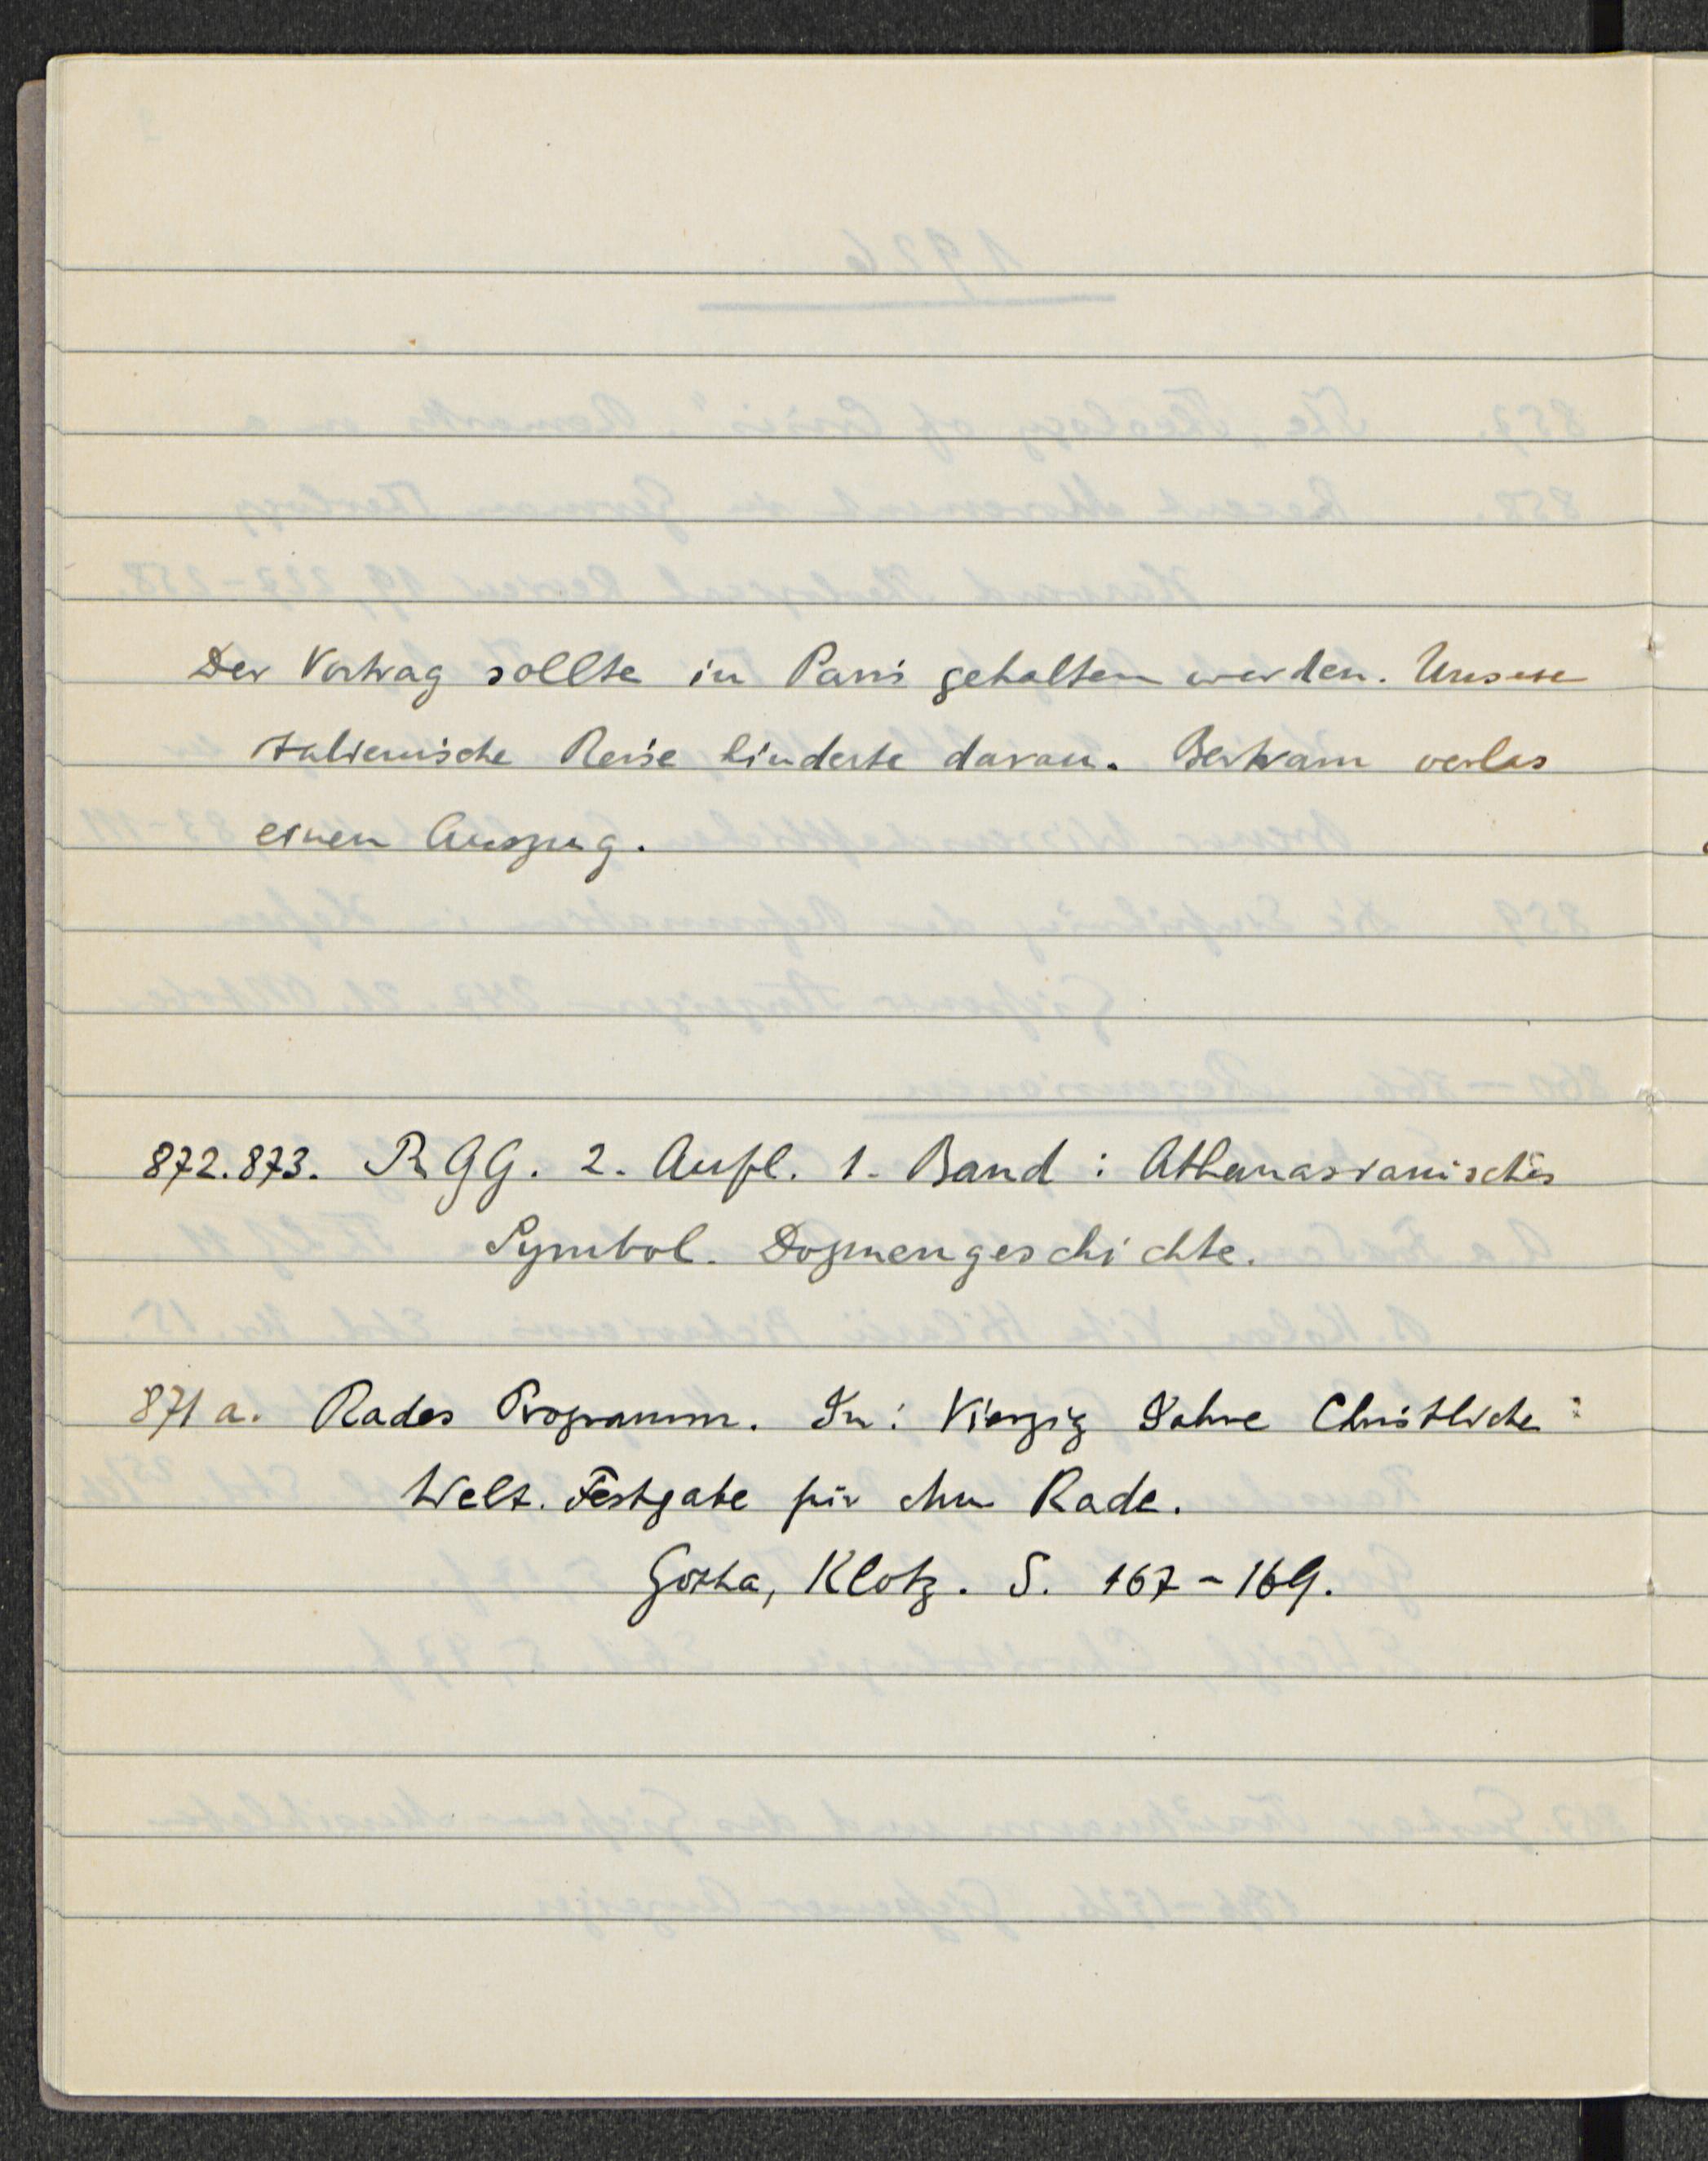 Der Vortrag sollte in Paris gehalten werden. Unsere
italienische Reise hinderte daran. Bertram verlas
einen Auszug.
872.873. RGG. 2. Aufl. 1. Band: Athanasianisches
Symbol. Dogmengeschichte.
871a. Rades Programm. In: Vierzig Jahre Christliche
Welt. Festgabe für Rade.
Gotha, Klotz. S. 167-169.